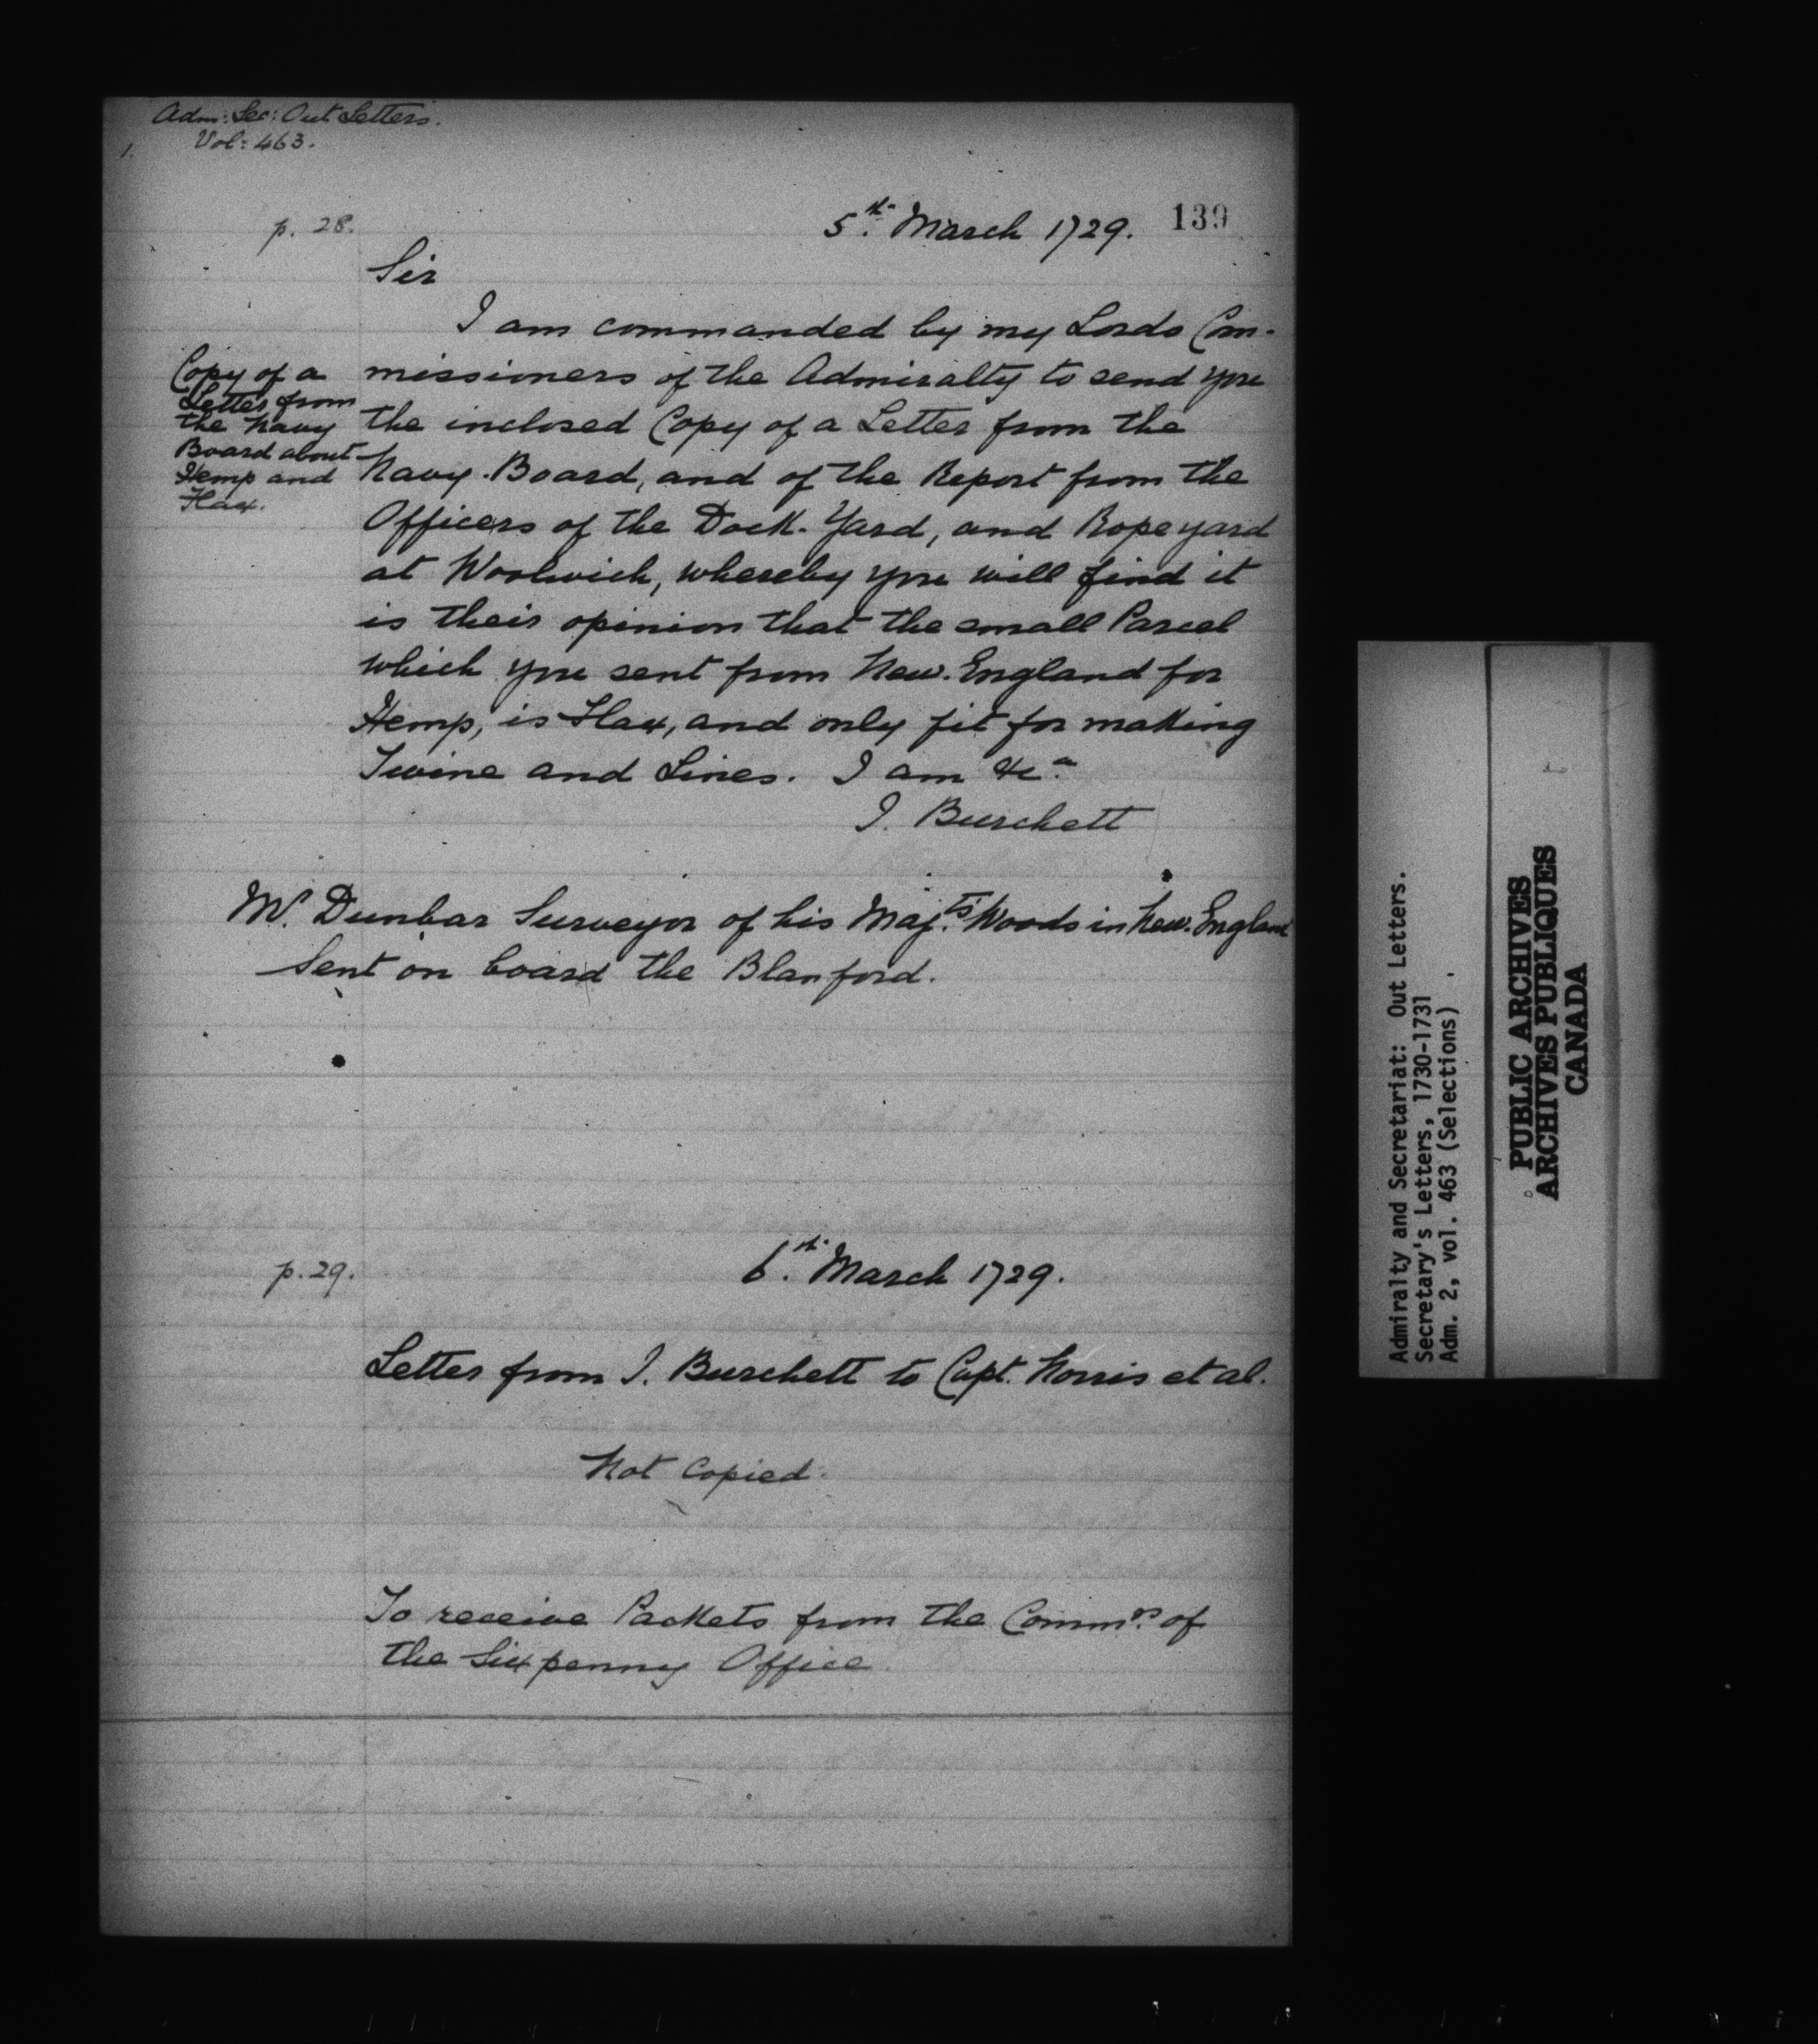 Adm: Sec: Out Letters.
Vol: 463.
1.
p. 28.
5th. March 1729. 139
Sir
I am commanded by my Lords Com-
Copy of a
Letter from
the Navy
Board about
Hemp and
Flax.
missioners of the Admiralty to send you
the inclosed Copy of a Letter from the
Navy. Board, and of the Report from the
Officers of the Dock-Yard, and Ropeyard
at Woolwich, whereby you will find it
is their opinion that the small Parcel
which you sent from New. England for
Hemp, is Flax, and only fit for making
Twine and Lines. I am &ca.
J. Burchett
Mr. Dunbar Surveyor of his Majts. Woods in New. England
Sent on board the Blanford.
p. 29.
6th. March 1729.
Letter from J. Burchett to Capt. Norris et al.
Not Copied.
To receive Packets from the Commrs. of
the Sixpenny Office.
Admiralty and Secretariat: Out Letters.
Secretary's Letters, 1730-1731
Adm. 2, vol. 463 (Selections)
PUBLIC ARCHIVES
ARCHIVES PUBLIQUES
CANADA